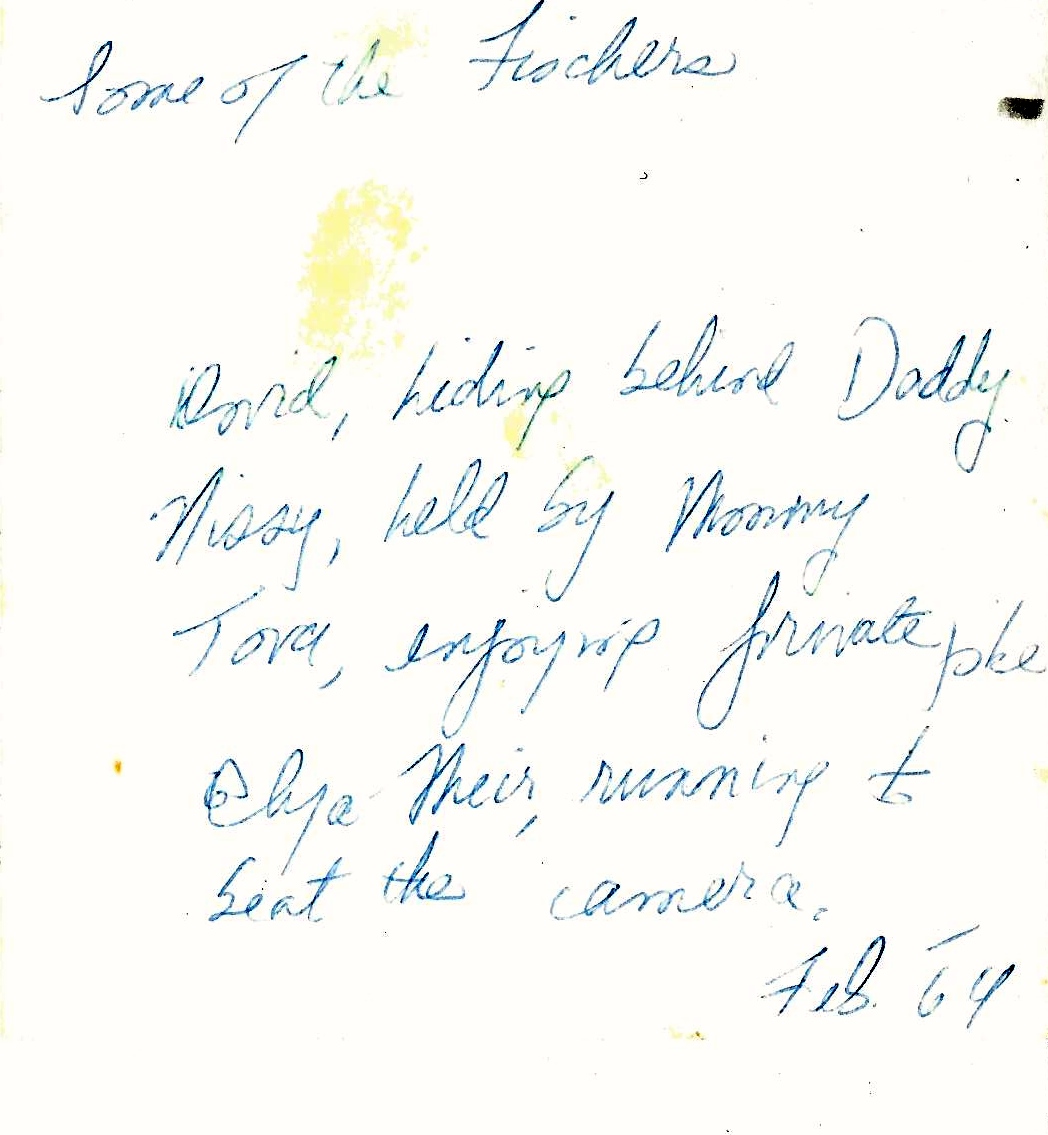 Some of the Fischers
David, hiding behind Daddy
Nissy, held by Mommy
Tova, enjoying private joke
Elya Meir, running to
beat the camera.
Feb. 64